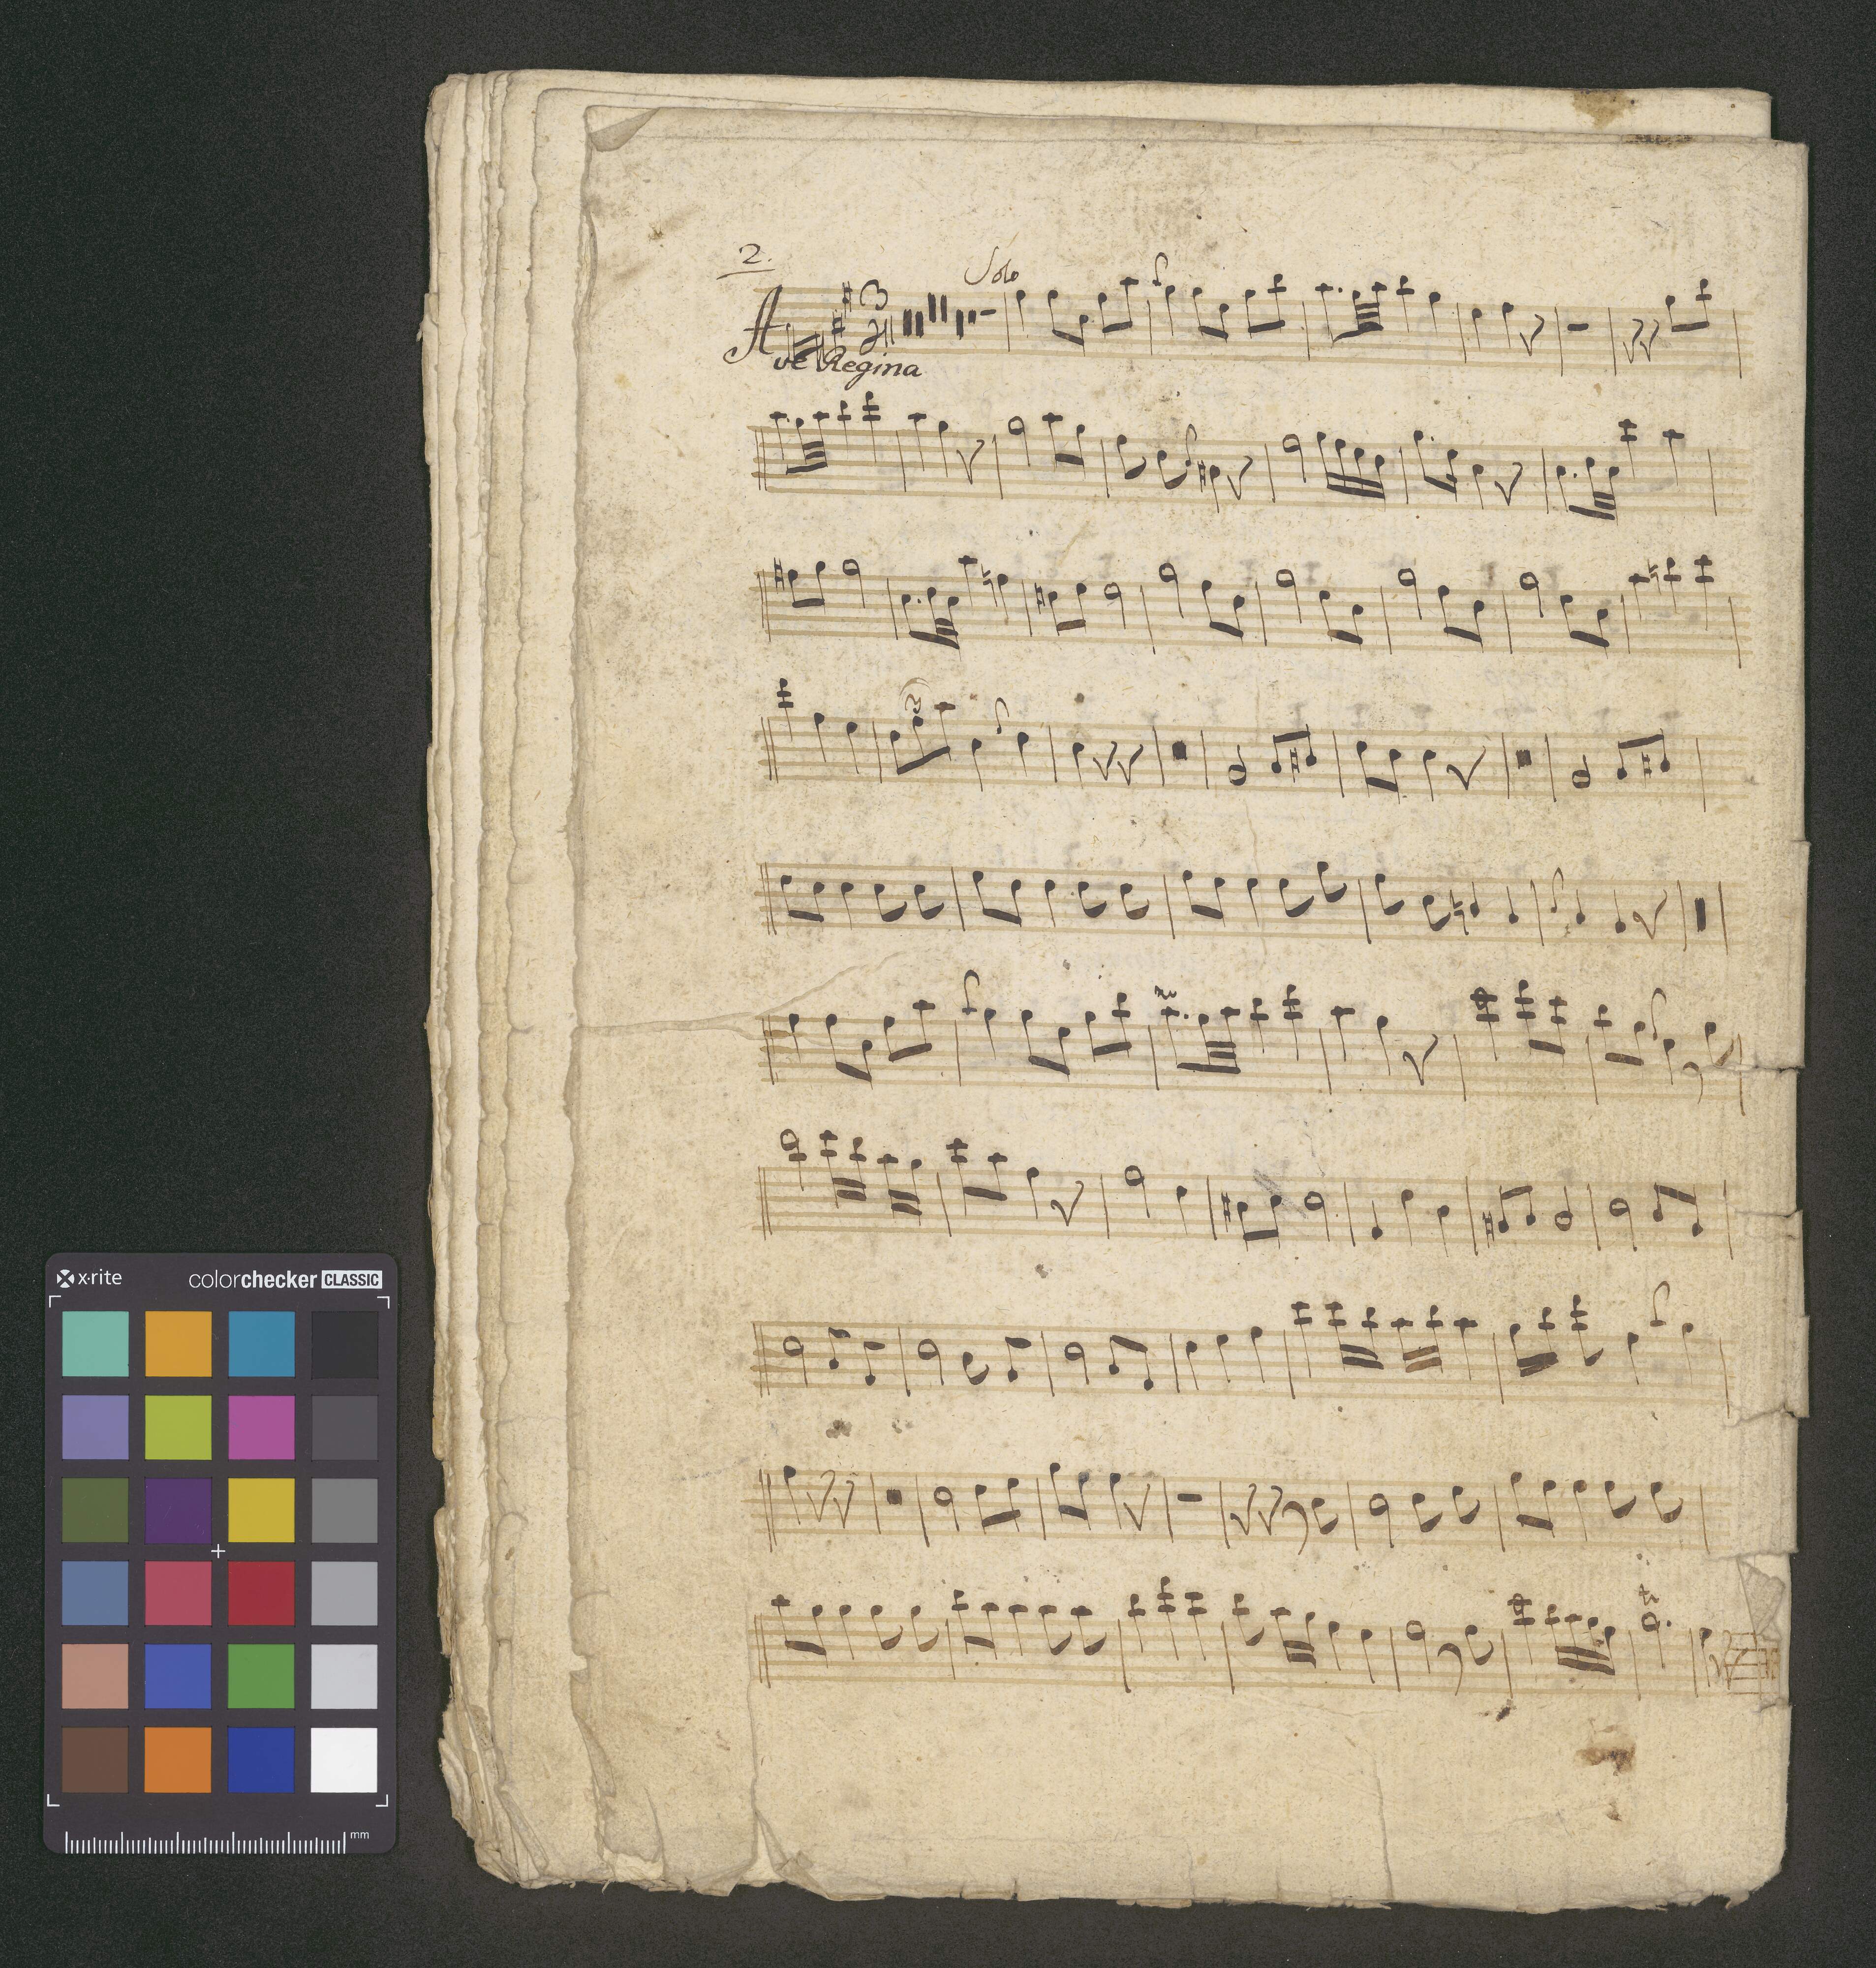 2.
Solo
Ave Regina
x-rite colorchecker CLASSIC
mm